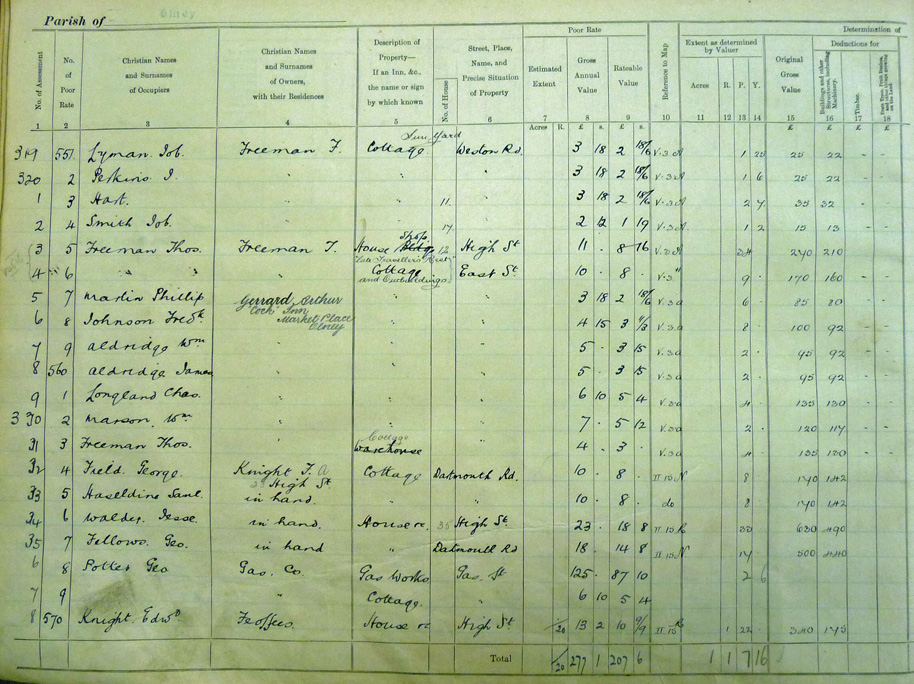 Parish of Olney
Poor Rate
Determination of
No. of Assessment
No. of Poor Rate
Christian Names and Surnames of Occupiers
Christian Names and Surnames of Owners, with their Residences
Description of Property— If an Inn, &c., the name or sign by which known
No. of House
Street, Place, Name, and Precise Situation of Property
Estimated Extent
Gross Annual Value
Rateable Value
Reference to Map
Extent as determined by Valuer
Original Gross Value
Deductions for
Buildings and other Structures, including Machinery.
Timber.
1 2 3 4 5 6 7 8 9 10 11 12 13 14 15 16 17 18
Acres R. £ s. £ s. Acres R. P. Y. £ £ £ £
319 551 Lyman. Job. Freeman F. Cottage. Weston Rd. 3 18 2 18/6 1 25 22
320 2 Perkins J. " " " 3 18 2 18/6 1 6 25 22
1 3 Hart. " " 11. " 3 18 2 18/6 2 7 35 32
2 4 Smith Job. " " 17 " 2 12 1 19 1 2 15 13
3 5 Freeman Thos. Freeman T. House Shop 12 High St 11 . 8 16 240 210
"Late Travellers Rest"
4 6 " " " Cottage and Outbuildings East St 10 . 8 . 9 . 170 160
5 7 Martin Phillip Gerrard, Arthur " " 3 18 2 18/6 6 . 85 80
Cock Inn
Market Place
Olney
6 8 Johnson Fredk " " 4 15 3 8 . 100 92
7 9 Aldridge Wm " " " 5 . 3 15 2 . 95 92
8 560 Aldridge James " " " 5 . 3 15 2 . 95 92
9 1 Longland Chas. " " " 6 10 5 4 4 . 135 130
330 2 Marson. Wm " " " 7 . 5 12 2 . 120 117
Cottage
31 3 Freeman Thos. " Warehouse " 4 . 3 . 4 . 135 130
32 4 Field. George. Knight T. A Cottage Dartmouth Rd. 10 . 8 . 8
23 High St
33 5 Haseldine Saml. in hand. " " 10 . 8 . do 8
34 6 Walden Jesse. in hand. House &c. 35 High St. 23 . 18 8 30 630 490
35 7 Fellows. Geo. in hand " Dartmouth Rd 18 . 14 8 14 500 440
6 8 Potter Geo Gas. Co. Gas Works Gas. St 125 . 87 10 2 6
7 9 Cottage. " 6 10 5 4
8 570 Knight. Edwd. Feoffees. House &c High St /20 13 2 10 9/9 1 22 340 175
Total /20 277 1 207 6 1 1 7 16